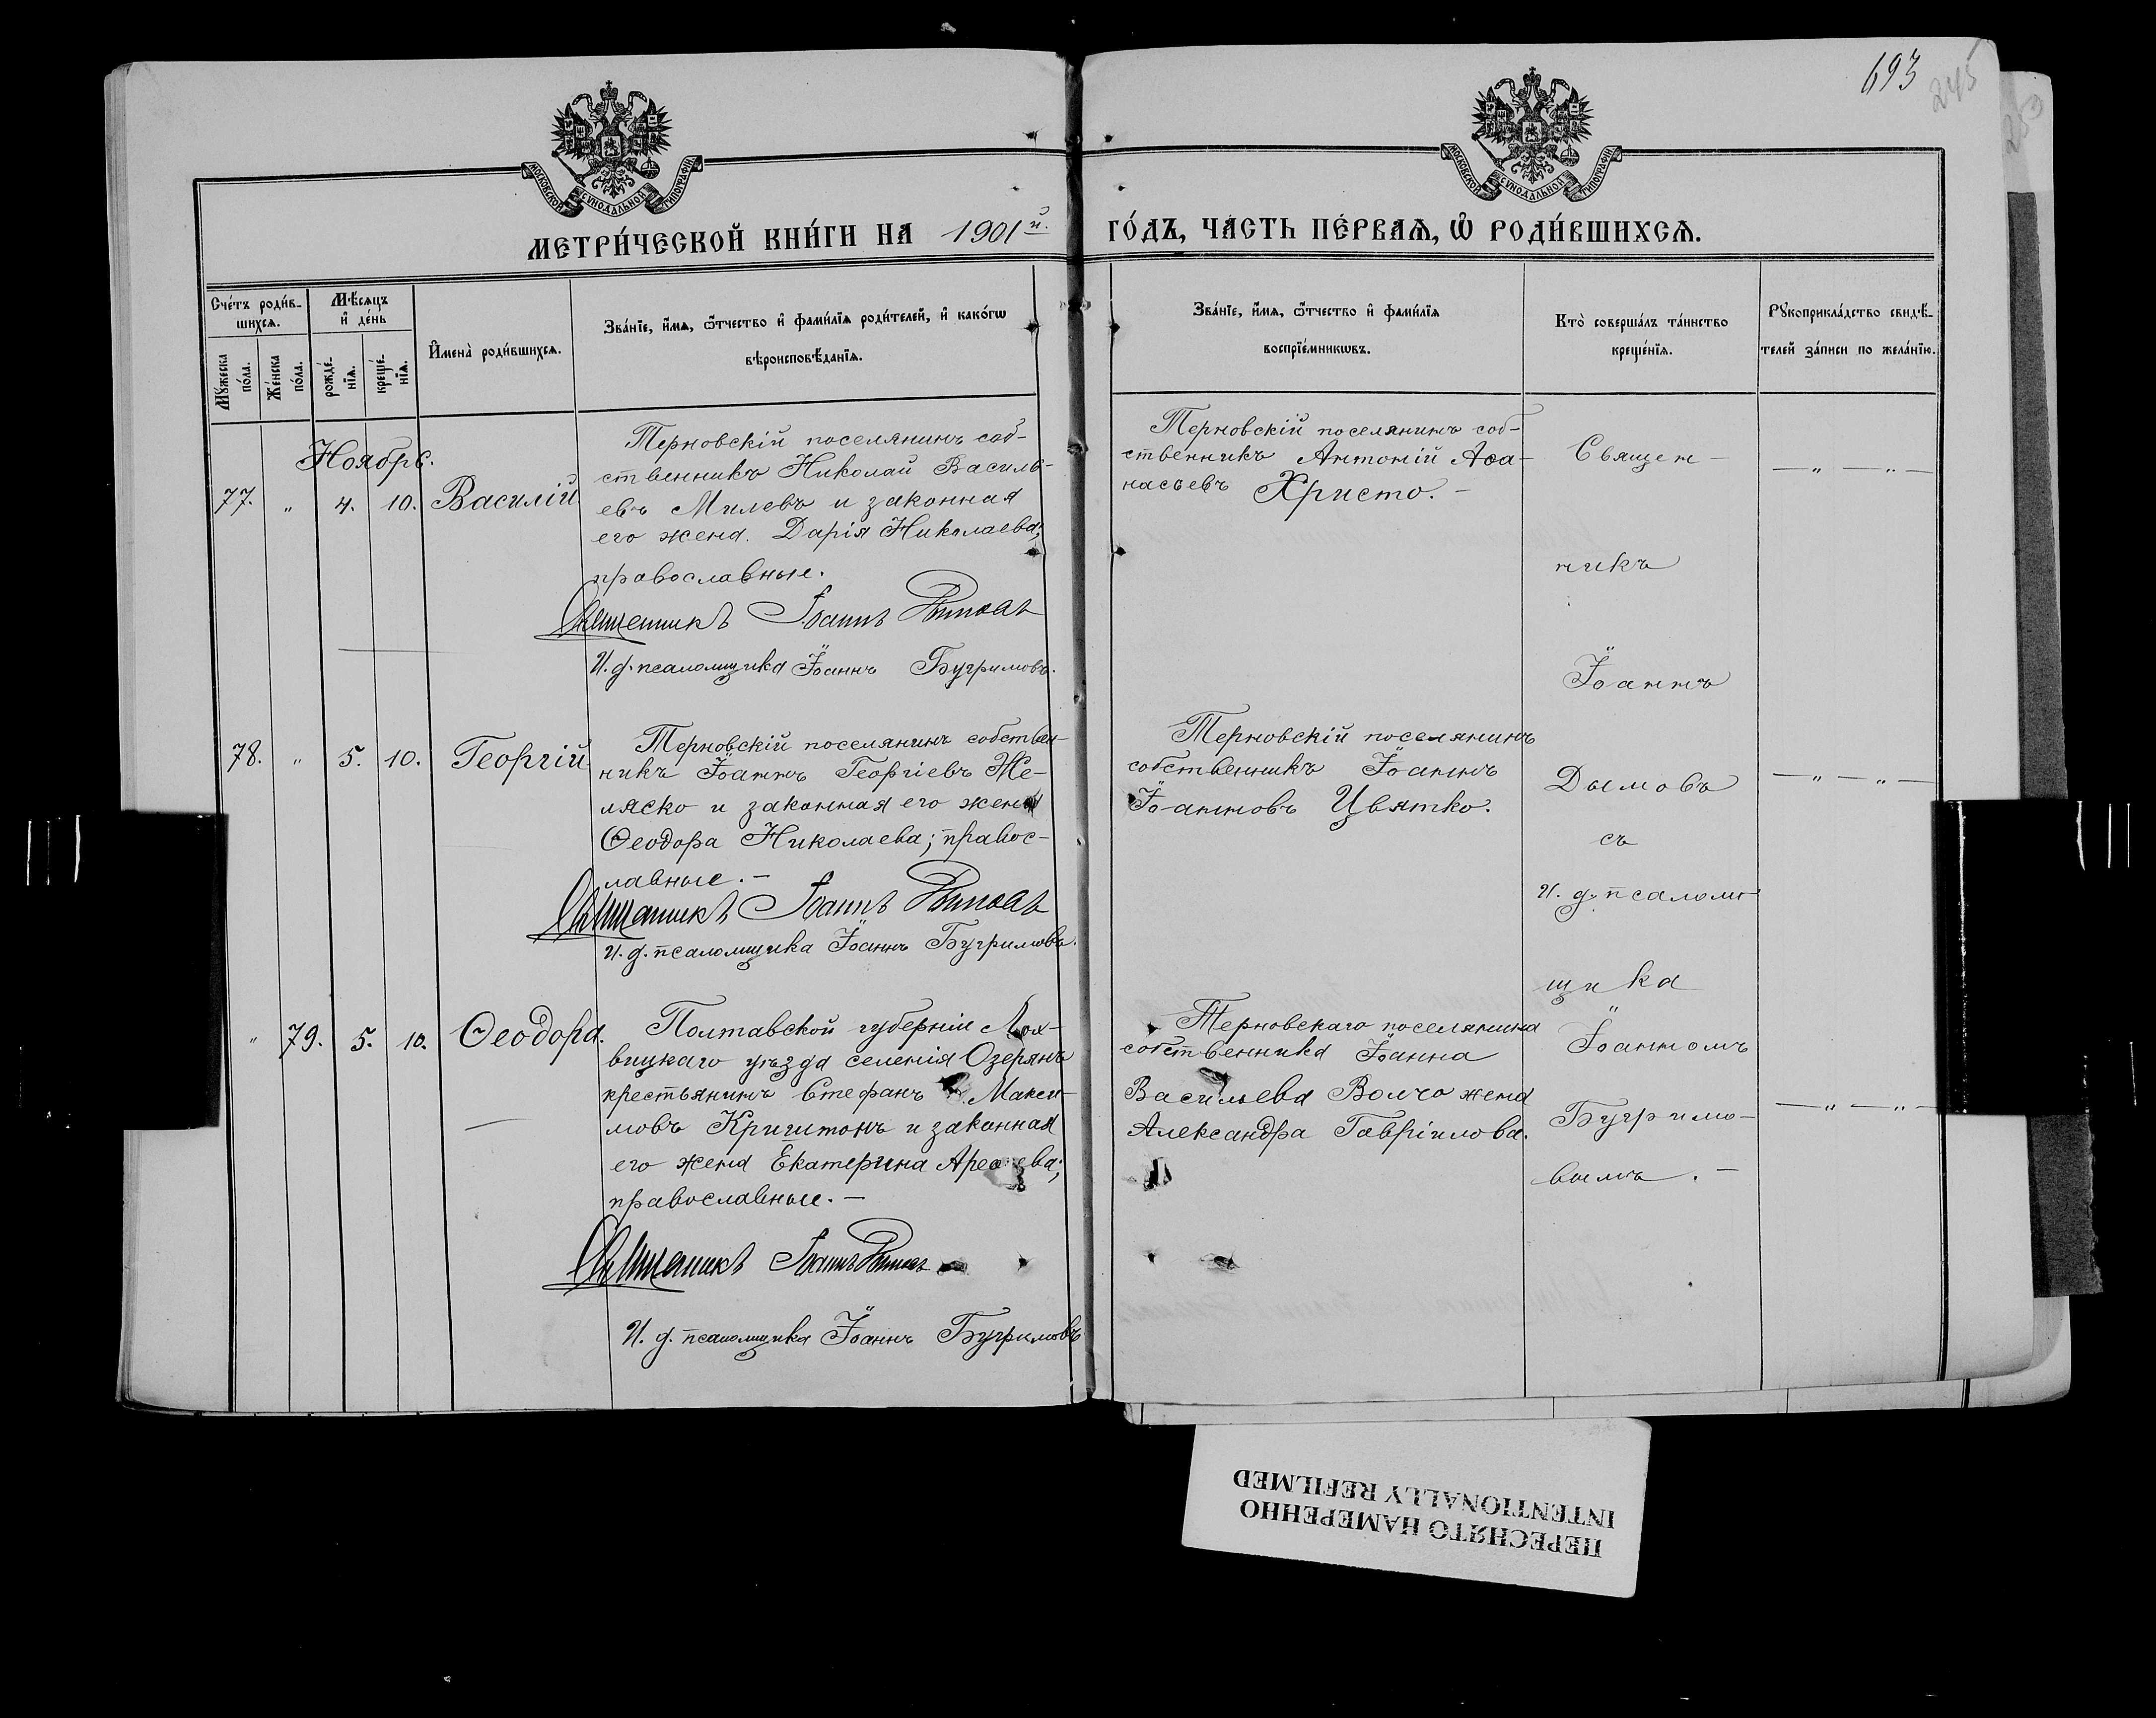 693
245
МОСКОВСКОЙ СѴНОДАЛЬНОЙ ТИПОГРАФІИ
МОСКОВСКОЙ СѴНОДАЛЬНОЙ ТИПОГРАФІИ
МЕТРИ́ЧЕСКОЙ КНИ́ГИ НА 1901й. ГО́ДЪ, ЧА́СТЬ ПЕ́РВАѦ, Ѡ РОДИ́ВШИХСѦ.
Сче́тъ роди́в-
шихсѧ.
Мꙋ́жеска
по́ла.
Же́нска
по́ла.
Мѣ́сяцъ
и҆ де́нь
рожде́-
нїѧ.
креще́-
нїѧ.
И҆мена̀ роди́вшихсѧ.
Зва́нїе, и҆́мѧ, ѻ҆́тчество и҆ фами́лїѧ роди́телей, и҆ како́гѡ
вѣроисповѣ́данїѧ.
Зва́нїе, и҆́мѧ, ѻ҆́тчество и҆ фами́лїѧ
воспрїе́мникѡвъ.
Кто̀ соверша́лъ та́инство
креще́нїѧ.
Рꙋкоприкла́дство свидѣ́-
телей за́писи по жела́нїю.
Ноябрь.
77. „ 4. 10. Василій
Терновскій поселянинъ соб-
ственникъ Николай Василь-
евъ Милевъ и законная
его жена Дарія Николаева;
православные.
Священникъ Іоаннъ Дымовъ
И. д. псаломщика Іоаннъ Бугримовъ.
Терновскій поселянинъ соб-
ственникъ Антоній Аѳа-
насьевъ Христо. –
— „ — „ —
78. „ 5. 10. Георгій
Терновскій поселянинъ собствен-
никъ Іоаннъ Георгіевъ Же-
ляско и законная его жена
Ѳеодора Николаева; правос-
лавные. –
Священникъ Іоаннъ Дымовъ
И. д. псаломщика Іоаннъ Бугримовъ.
Терновскій поселянинъ
собственникъ Іоаннъ
Іоанновъ Цвятко.
— „ — „ —
„ 79. 5. 10. Ѳеодора.
Полтавской губерніи Лох-
вицкаго уѣзда селенія Озерянъ
крестьянинъ Стефанъ Макси-
мовъ Криштонъ и законная
его жена Екатерина
православные. –
Священникъ Іоаннъ Дымовъ
И. д. псаломщика Іоаннъ Бугримовъ
Терновскаго поселянина
собственника Іоанна
Васильева Волчо жена
Александра Гавріилова.
— „ — „ —
Священ-
никъ
Іоаннъ
Дымовъ
съ
и. д. псалом-
щика
Іоанномъ
Бугримо-
вымъ. –
ПЕРЕСНЯТО НАМЕРЕННО
INTENTIONALLY REFILMED